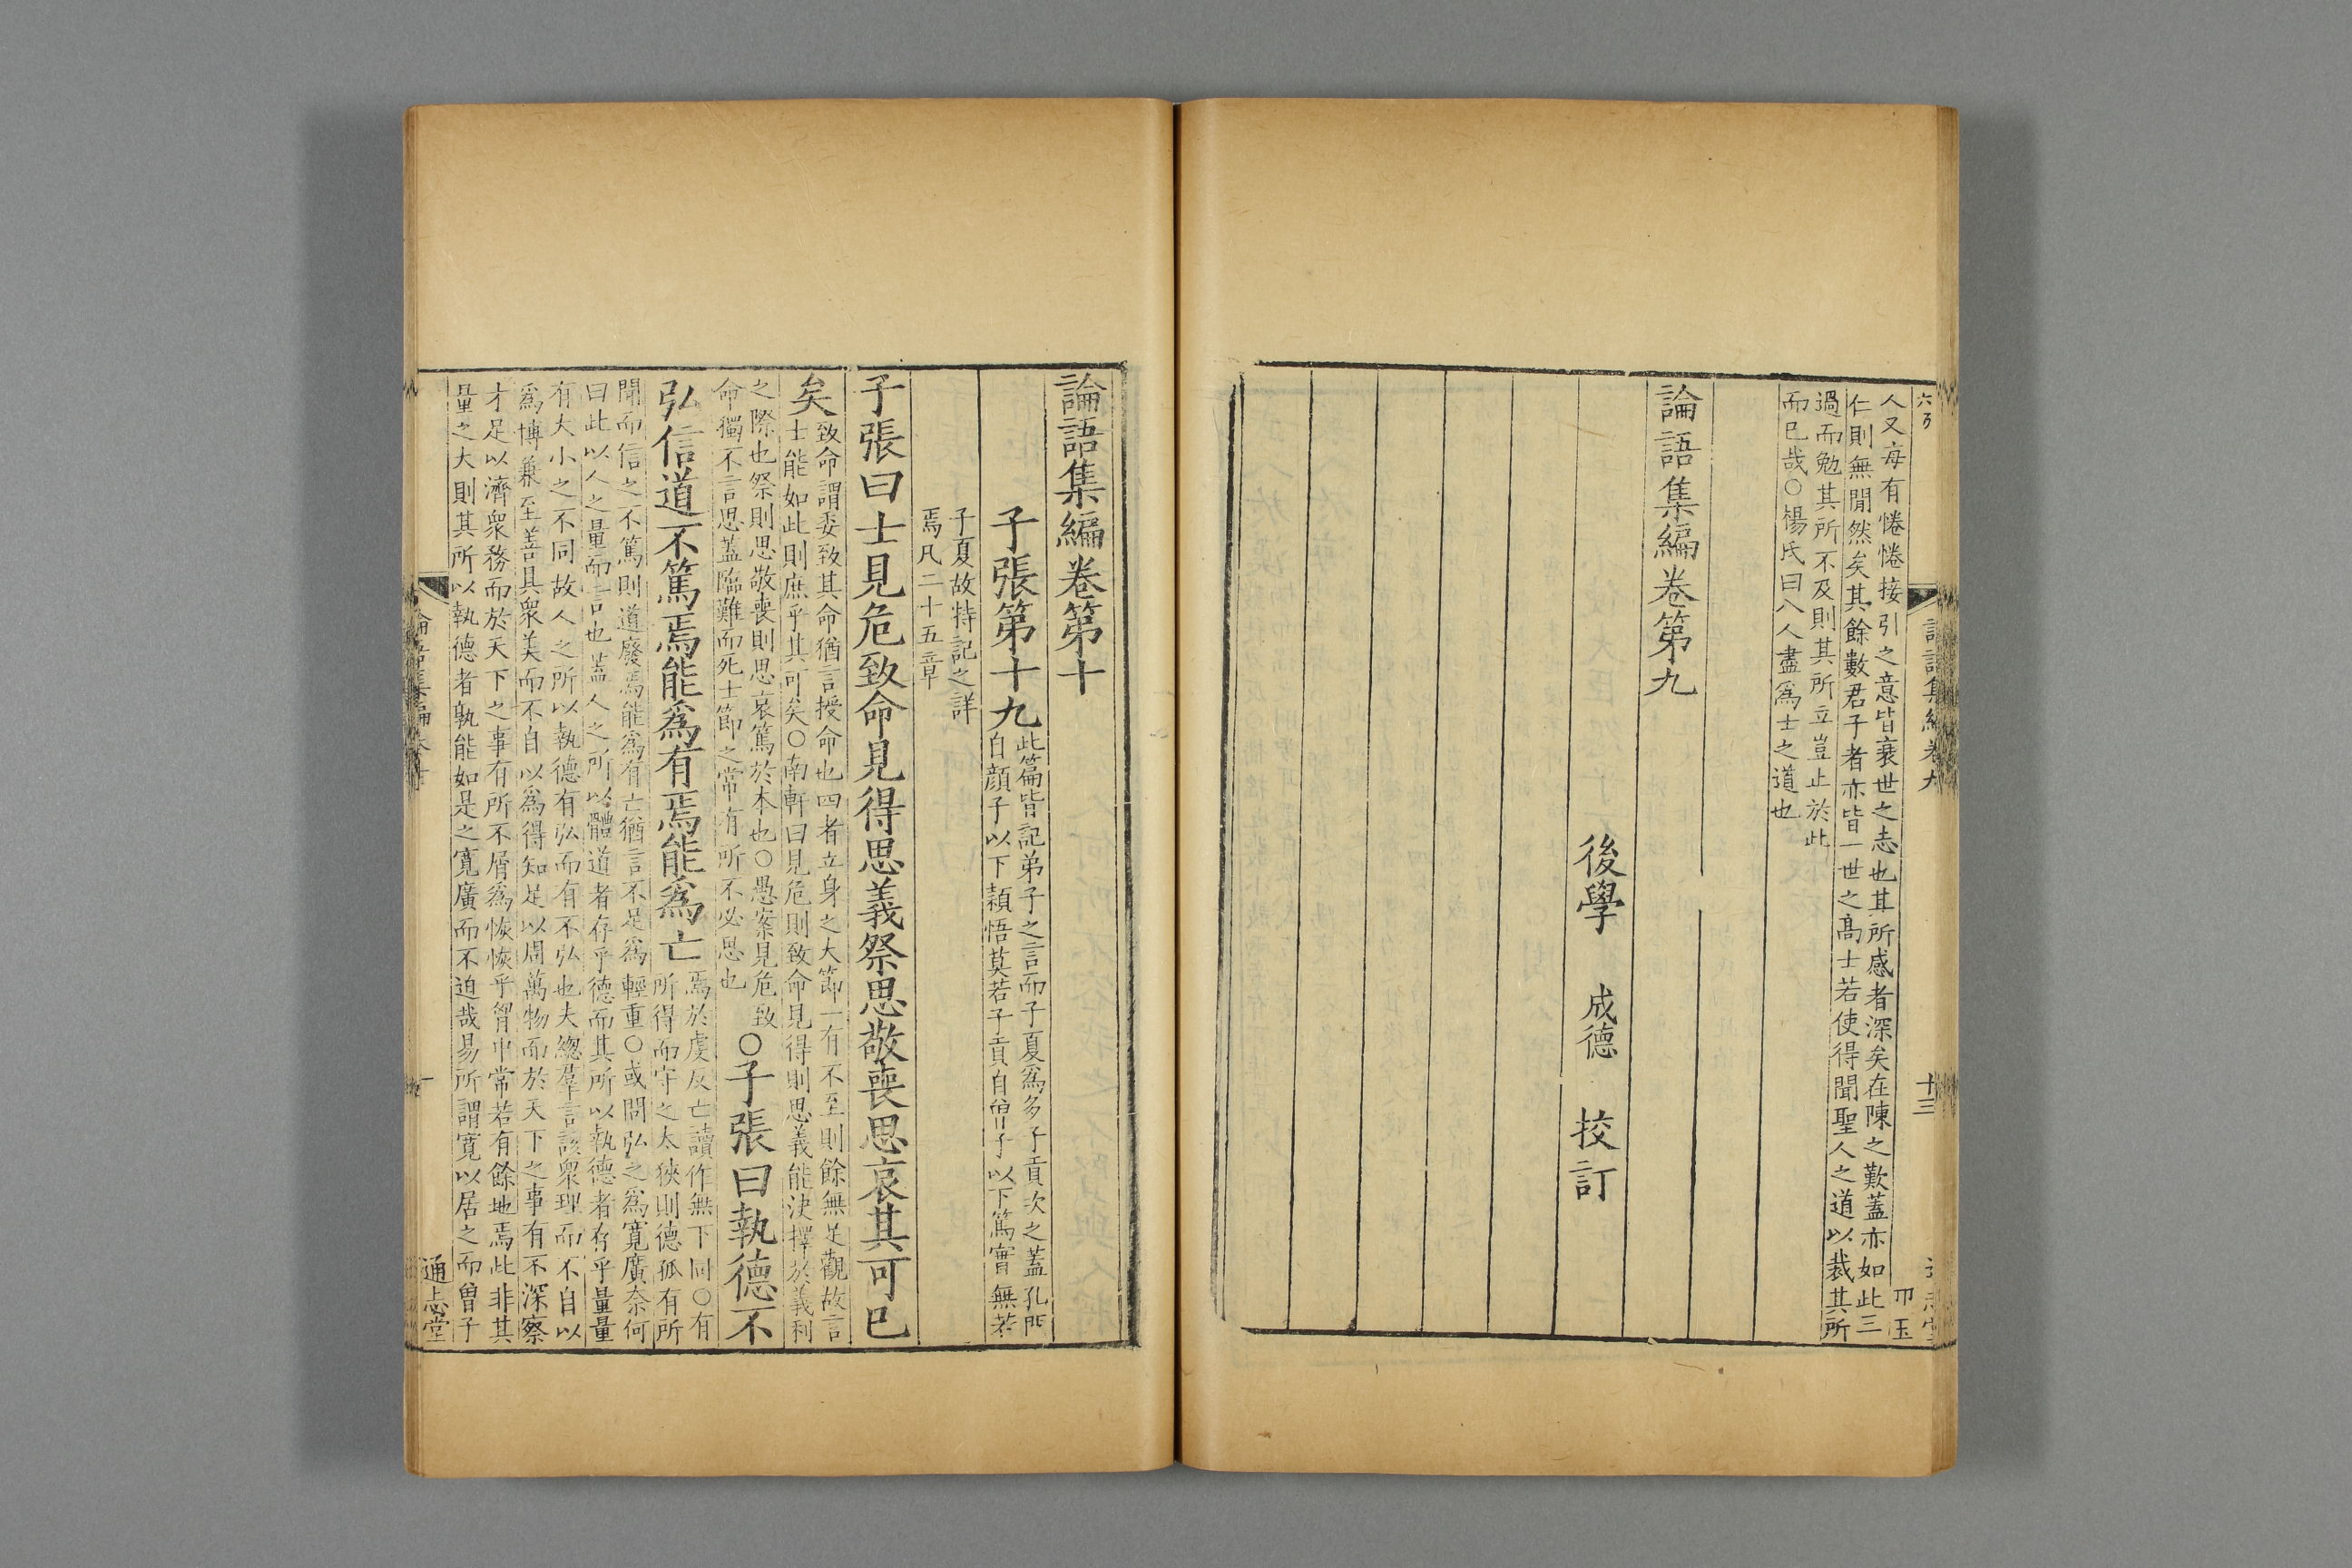 人又每有惓惓接引之意皆衰世之志也其所感者深矣在陳之歎蓋亦如此三
仁則無間然矣其餘數君子者亦皆一世之高士若使得聞聖人之道以裁其所
過而勉其所不及則其所立豈止於此
而已哉○楊氏曰八人盡爲士之道也
論語集編卷第九
後學 成德 挍訂
論語集編卷第十
子張第十九
此篇皆記弟子之言而子夏爲多子貢次之蓋孔門
自顔子以下穎悟莫若子貢自曾子以下篤實無若
子夏故特記之詳
焉凡二十五章
子張曰士見危致命見得思義祭思敬喪思哀其可已
矣
致命謂委致其命猶言授命也四者立身之大節一有不至則餘無足觀故言
士能如此則庶乎其可矣○南軒曰見危則致命見得則思義能決擇於義利
之際也祭則思敬喪則思哀篤於本也○愚案見危致
命獨不言思蓋臨難而死士節之常有所不必思也
○子張曰執德不
弘信道不篤焉能爲有焉能爲亡
焉於虔反亡讀作無下同○有
所得而守之太狹則德孤有所
聞而信之不篤則道廢焉能爲有亡猶言不足爲輕重○或問弘之爲寬廣奈何
曰此以人之量而言也蓋人之所以體道者存乎德而其所以執德者存乎量量
有大小之不同故人之所以執德有弘而有不弘也夫總羣言該衆理而不自以
爲博兼至善具衆美而不自以爲得知足以周萬物而於天下之事有不深察
才足以濟衆務而於天下之事有所不屑爲恢恢乎胷中常若有餘地焉此非其
量之大則其所以執德者孰能如是之寬廣而不迫哉易所謂寛以居之而曽子
通志堂